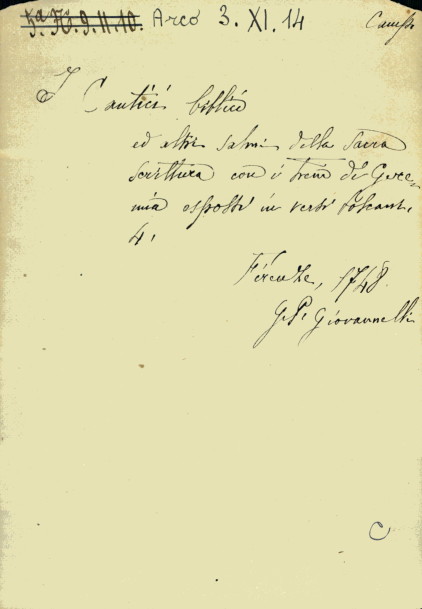 5ª. K5. 9. II. 10. Arco 3. XI. 14
I Cantici biblici
ed altri salmi della sacra
scrittura con i treni di Gere-
mia esposti in versi toscani.
4.
Firenze, 1748.
G. P. Giovannelli
C